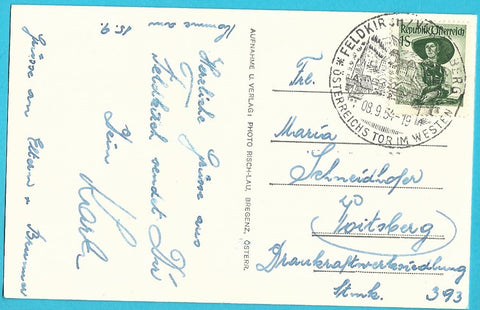 Komme am
15.9.
Herzliche Grüsse aus
Feldkirch sendet Dir
Dein
Karl
Grüsse an Eltern u. Brunner
AUFNAHME U. VERLAG: PHOTO RISCH-LAU, BREGENZ, ÖSTERR.
FELDKIRCH
09.9.54-19
ÖSTERREICHS TOR IM WESTEN
Republik Österreich
1S
Frl.
Maria
Schneidhofer
Voitsberg
Draukraftwerksiedlung
Stmk. 393